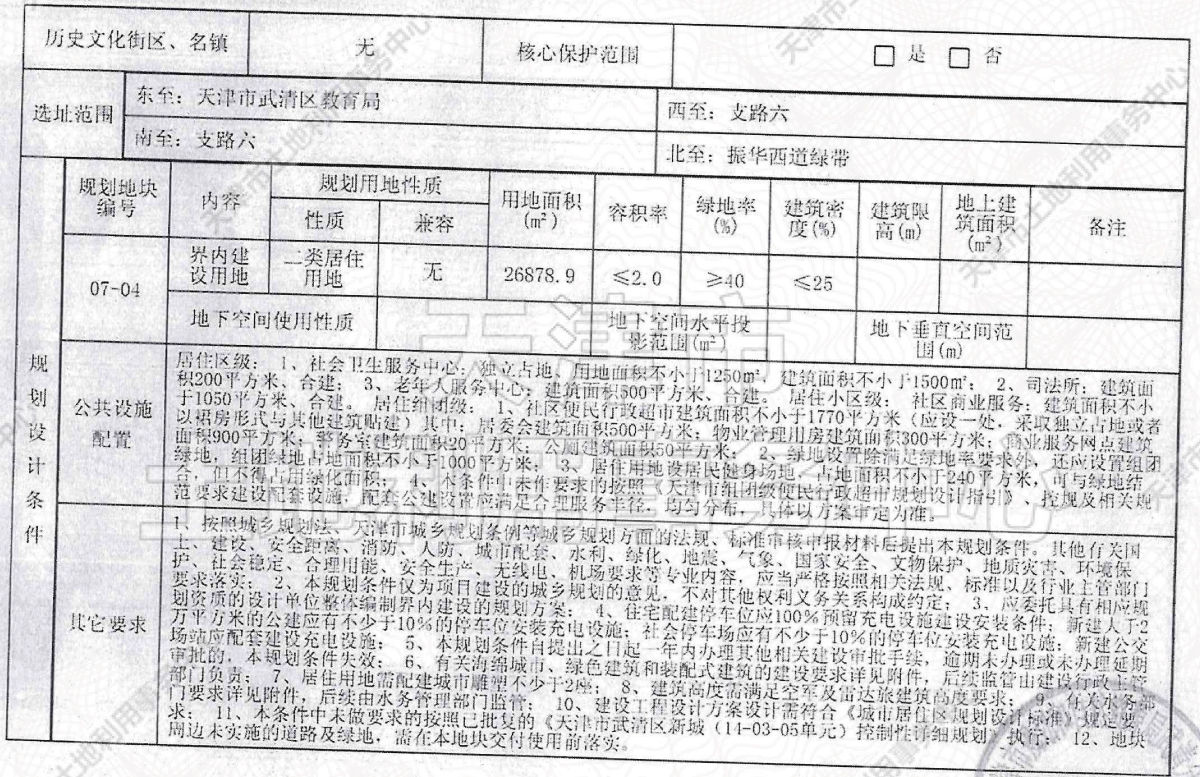 历史文化街区、名镇 无 核心保护范围 □ 是 □ 否
选址范围 东至：天津市武清区教育局 西至：支路六
南至：支路六 北至：振华西道绿带
规划设计条件
规划地块编号 内容 规划用地性质 用地面积(㎡) 容积率 绿地率(%) 建筑密度(%) 建筑限高(m) 地上建筑面积(㎡) 备注
性质 兼容
07-04 界内建设用地 二类居住用地 无 26878.9 ≤2.0 ≥40 ≤25
地下空间使用性质 地下空间水平投影范围(㎡) 地下垂直空间范围(m)
公共设施配置
居住区级：1、社会卫生服务中心：独立占地、用地面积不小于1250㎡，建筑面积不小于1500㎡；2、司法所：建筑面
积200平方米、合建；3、老年人服务中心：建筑面积500平方米、合建。居住小区级：社区商业服务：建筑面积不小
于1050平方米、合建。居住组团级：1、社区便民行政超市建筑面积不小于1770平方米（应设一处，采取独立占地或者
以裙房形式与其他建筑贴建）其中：居委会建筑面积500平方米；物业管理用房建筑面积300平方米；商业服务网点建筑
面积900平方米；警务室建筑面积20平方米；公厕建筑面积50平方米；2、绿地设置除满足绿地率要求外，还应设置组团
绿地，组团绿地占地面积不小于1000平方米；3、居住用地设居民健身场地，占地面积不小于240平方米，可与绿地结
合，但不得占用绿化面积；4、本条件中未作要求的按照《天津市组团级便民行政超市规划设计指引》、控规及相关规
范要求建设配套设施，配套公建设置应满足合理服务半径，均匀分布，具体以方案审定为准。
其它要求
1、按照城乡规划法、天津市城乡规划条例等城乡规划方面的法规、标准审核申报材料后提出本规划条件。其他有关国
土、建设、安全距离、消防、人防、城市配套、水利、绿化、地震、气象、国家安全、文物保护、地质灾害、环境保
护、社会稳定、合理用能、安全生产、无线电、机场要求等专业内容，应当严格按照相关法规、标准以及行业主管部门
要求落实；2、本规划条件仅为项目建设的城乡规划的意见，不对其他权利义务关系构成约定；3、应委托具有相应规
划资质的设计单位整体编制界内建设的规划方案；4、住宅配建停车位应100%预留充电设施建设安装条件；新建大于2
万平方米的公建应有不少于10%的停车位安装充电设施；社会停车场应有不少于10%的停车位安装充电设施；新建公交
场站应配套建设充电设施；5、本规划条件自提出之日起一年内办理其他相关建设审批手续，逾期未办理或未办理延期
审批的，本规划条件失效；6、有关海绵城市、绿色建筑和装配式建筑的建设要求详见附件，后续监管由建设行政主管
部门负责；7、居住用地需配建城市雕塑不少于2座；8、建筑高度需满足空军及雷达旅建筑高度要求；9、有关水务部
门要求详见附件，后续由水务管理部门监管；10、建设工程设计方案设计需符合《城市居住区规划设计标准》规定要
求；11、本条件中未做要求的按照已批复的《天津市武清区新城（14-03-05单元）控制性详细规划》执行；12、地块
周边未实施的道路及绿地，需在本地块交付使用前落实。
天津市
土地利用事务中心